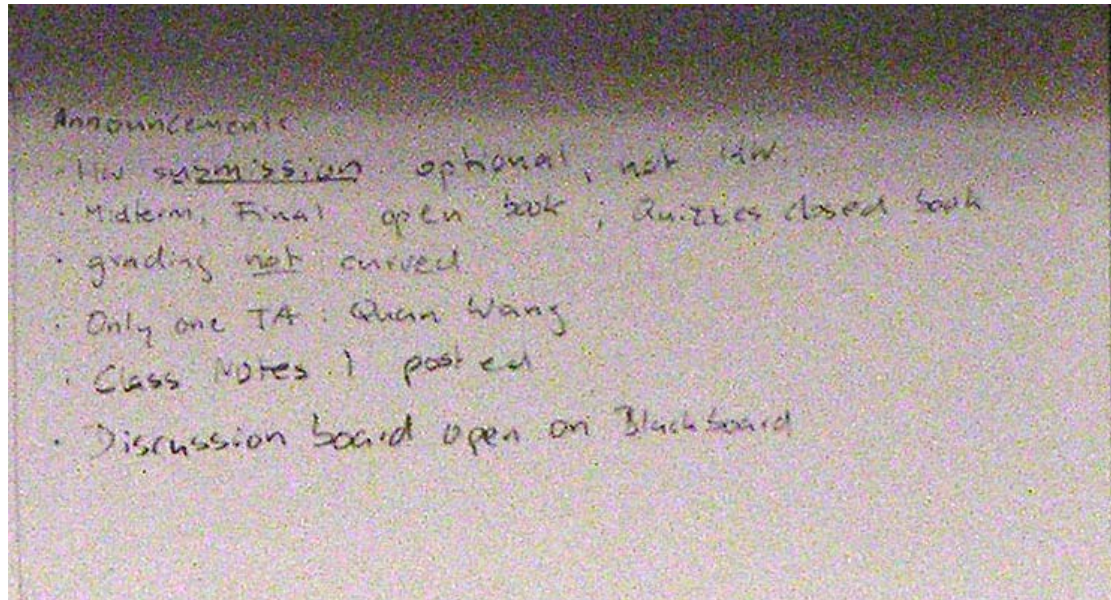 Announcements
· HW submission optional, not HW
· Midterm, Final open book ; Quizzes closed book
· grading not curved
· Only one TA : Quan Wang
· Class Notes 1 posted
· Discussion board open on Blackboard